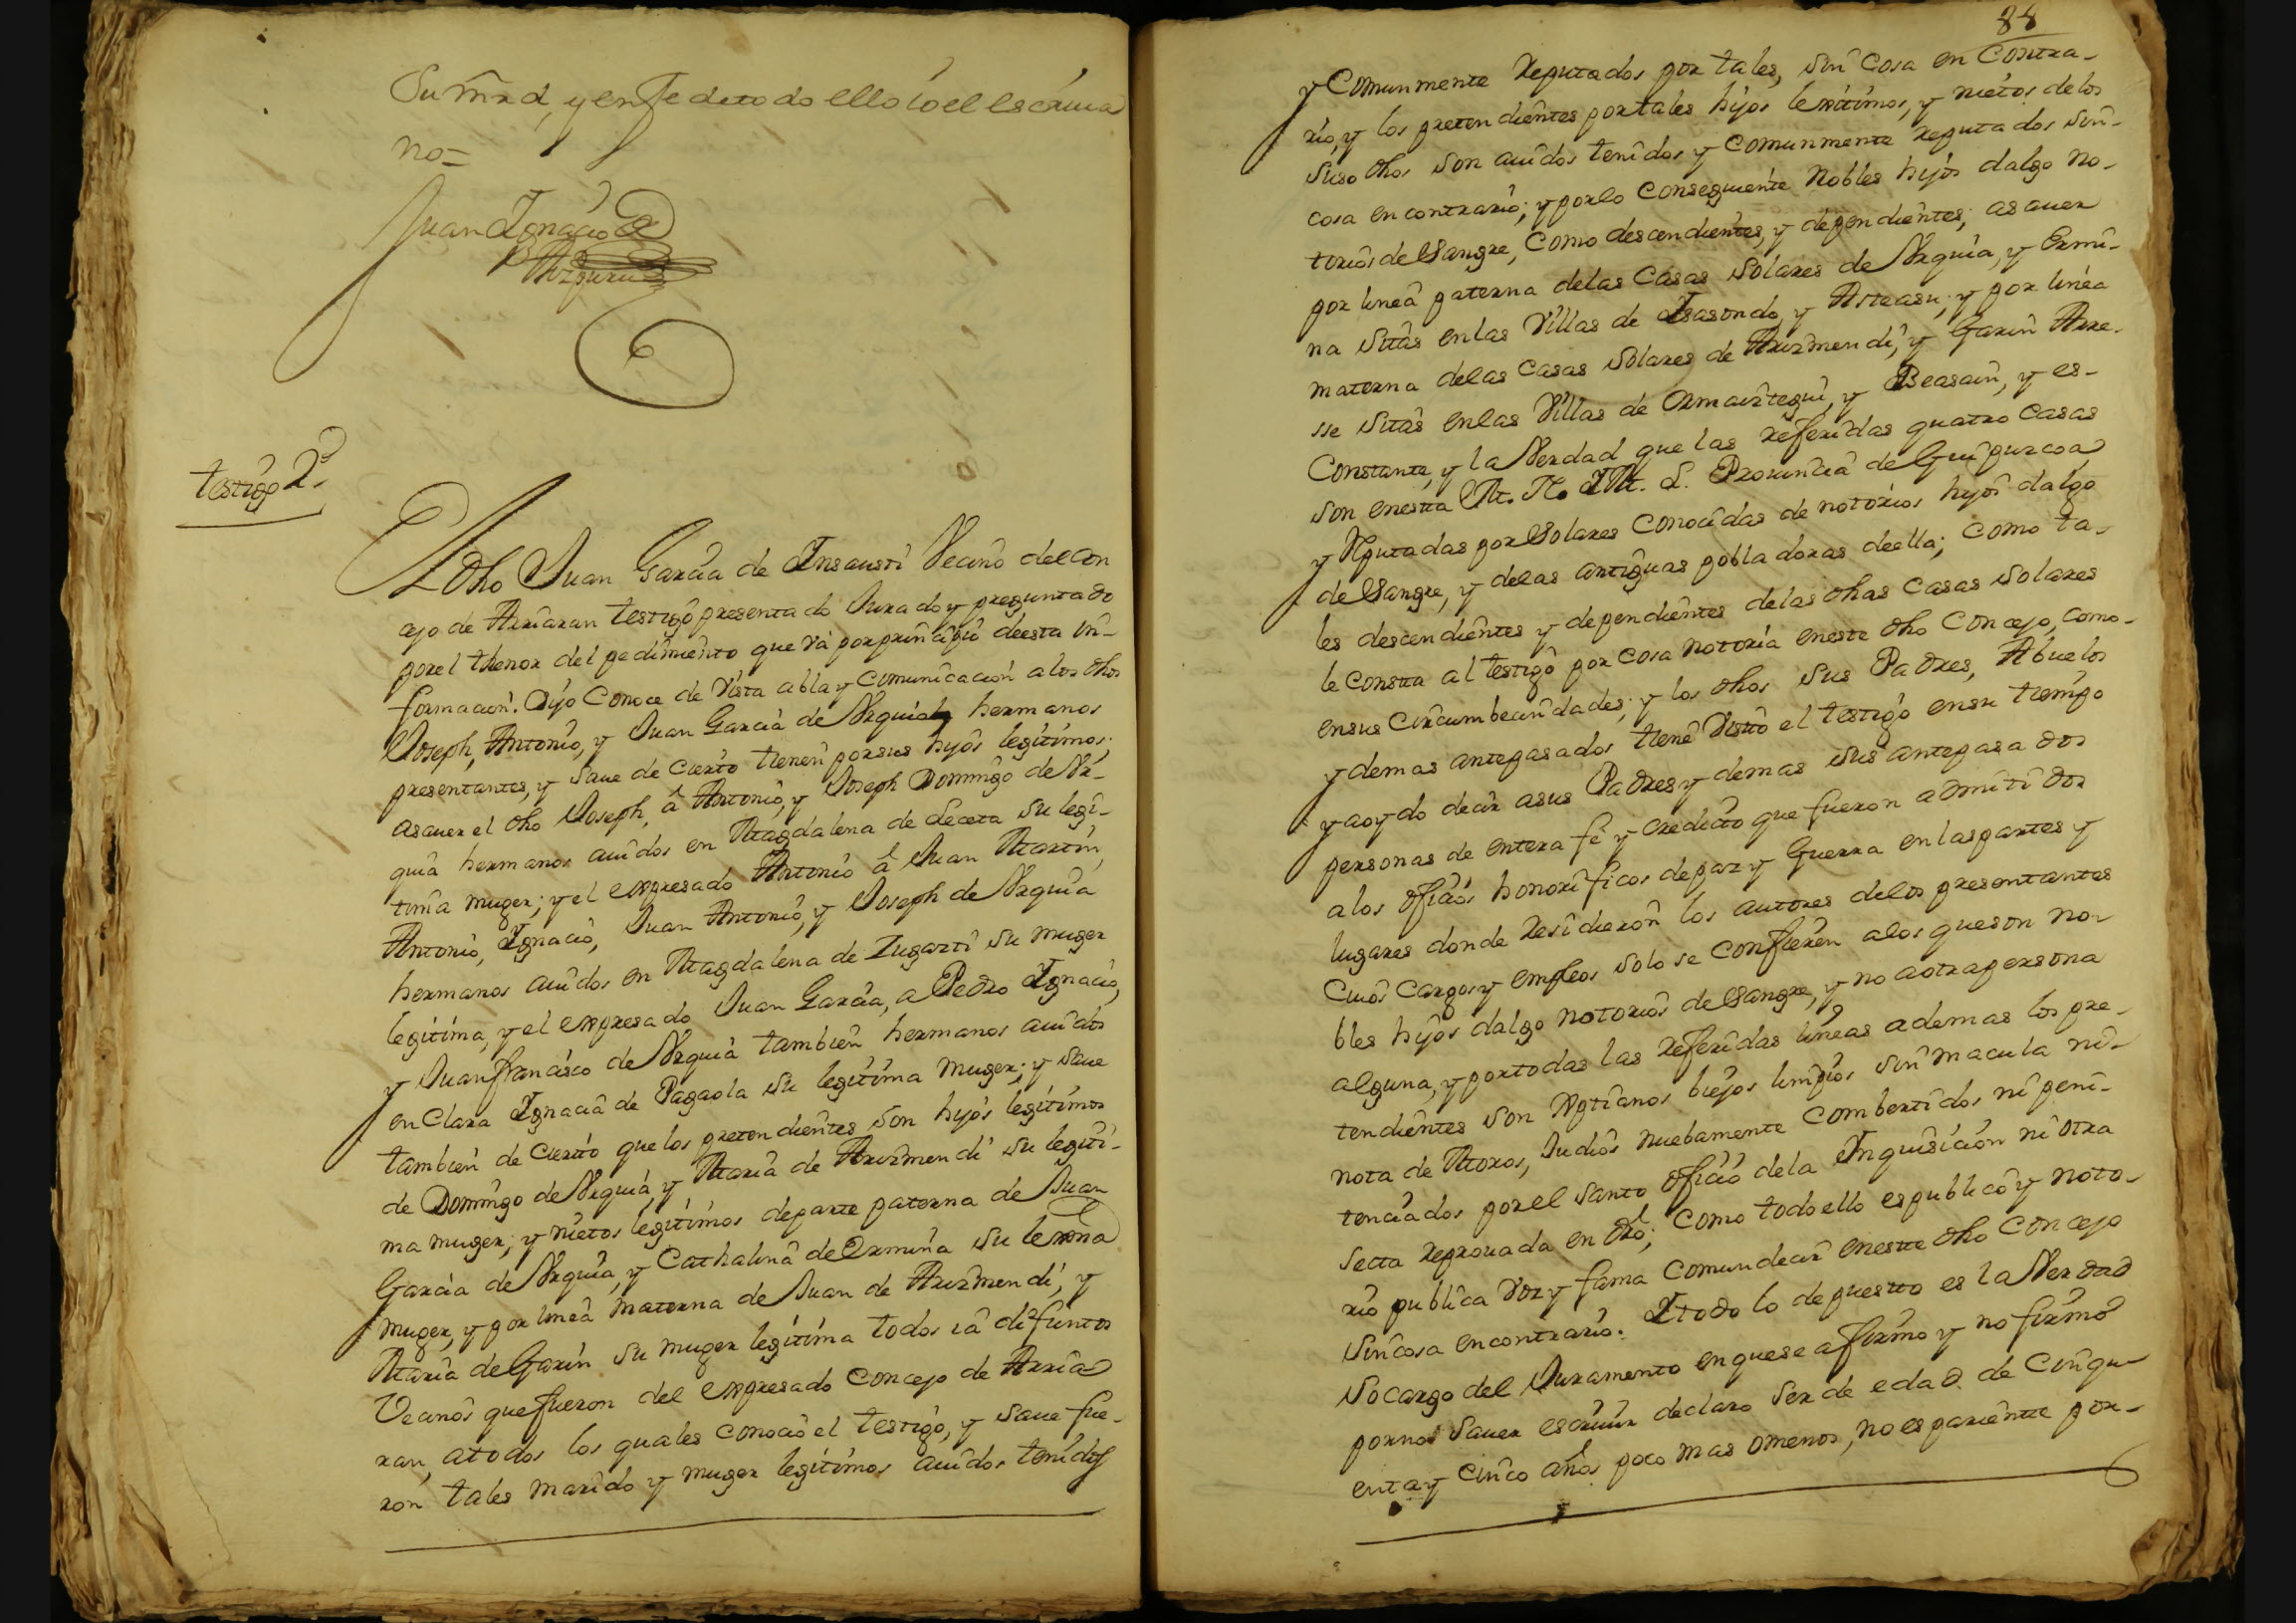 Su mrd, y en fe de todo ello io el escriua
no=
Juan Ignacio de
Aizpuru
testigo 2º
El dho Juan Garcia de Insausti Vecino del con
cejo de Arriaran testigo presentado Jurado y preguntado
por el thenor del pedimiento que và por principio de esta in-
formacion. Dijo conoce de Vista abla y comunicacion a los dhos
Joseph, Antonio, y Juan Garcia de Vrquia hermanos
presentantes, y saue de cierto tienen por sus hijos legitimos;
asauer el dho Joseph, à Antonio, y Joseph Domingo de Vr-
quia hermanos auidos en Magdalena de Leceta su legi-
tima muger; y el expresado Antonio à Juan Martin,
Antonio, Ignacio, Juan Antonio, y Joseph de Vrquia
hermanos auidos en Magdalena de Zugazti su muger
legitima, y el expresado Juan Garcia, a Pedro Ignacio,
y Juan francisco de Vrquia tambien hermanos auidos
en Clara Ignacia de Pagaola su legitima muger; y saue
tambien de cierto que los pretendientes son hijos legitimos
de Domingo de Vrquia, y Maria de Arizmendi su legiti-
ma muger; y nietos legitimos de parte paterna de Juan
Garcia de Vrquia, y Cathalina de Ermina su lexma
muger, y por linea materna de Juan de Arizmendi, y
Maria de Garin su muger legitima todos ia difuntos
Vecinos que fueron del expresado concejo de Arria
ran, a todos los quales conocio el testigo, y saue fue-
ron tales marido y muger legitimos auidos tenidos
88
y comunmente reputados por tales, sin cosa en contra-
rio, y los pretendientes por tales hijos lexitimos, y nietos de los
suso dhos son auidos tenidos y comunmente reputados sin-
cosa en contrario; y por lo conseguiente Nobles hijos dalgo no-
torios de Sangre, como descendientes, y dependientes; asauer
por linea paterna de las Casas Solares de Vrquia, y Ermi-
na sitas en las Villas de Isasondo, y Asteasu; y por linea
materna de las Casas Solares de Arizmendi, y Garin Arre-
sse sitas en las Villas de Ormaiztegui, y Beasain, y es-
Constante, y la Verdad que las referidas quatro casas
son en estta M. N. I M. L. Prouincia de Guipuzcoa,
y Rputadas por Solares conocidas de notorios hijos dalgo
de Sangre, y de las antiguas pobladoras de ella; como ta-
les descendientes y dependientes de las dhas Casas Solares
le constta al testigo por cosa notoria en este dho concejo, como-
en sus circumbecindades; y los dhos sus Padres, Abuelos
y demas antepasados tiene Vistto el testigo en su tiempo
y aoydo decir asus Padres y demas sus antepasados
personas de entera fe y credicto que fueron admitidos
a los oficios honorificos de paz y Guerra en las partes y
lugares donde residieron los autores de los presentantes
Cuios cargos y empleos solo se confieren a los que son no-
bles hijos dalgo notorios de Sangre, y no a otra persona
alguna, y por todas las referidas lineas ademas los pre-
tendientes son Xptianos biejos limpios sin macula ni-
nota de Moros, Judios nuebamente combertidos ni peni-
tenciados por el santo oficio de la Inquisicion ni otra
secta reprouada en dro; como todo ello es publico y noto-
rio publica voz y fama comun decir en estte dho concejo
sin cosa en contrario. I todo lo depuestto es la Verdad
so cargo del Juramento en que se afirmo y no firmò
por no sauer escriuir declaro ser de edad de cinqu-
enta y cinco años poco mas o menos, no es pariente por-